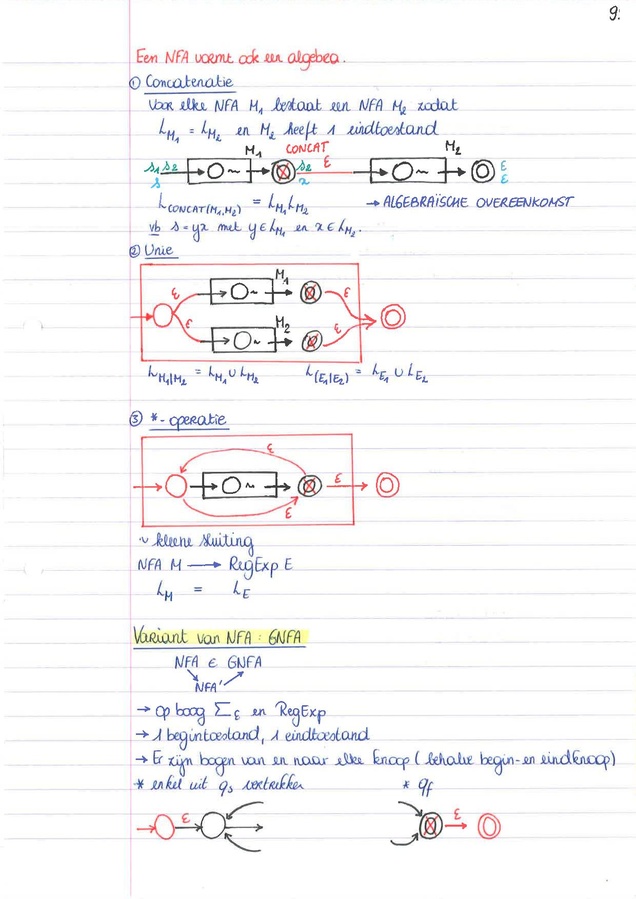 9.
Een NFA vormt ook een algebra.
① Concatenatie
Voor elke NFA M₁ bestaat een NFA M₂ zodat
L_M₁ = L_M₂ en M₂ heeft 1 eindtoestand
M₁ CONCAT M₂
s₁ s₂ s ~ s₂ x ε ~ ε ε
L_CONCAT(M₁,M₂) = L_M₁ L_M₂ → ALGEBRAÏSCHE OVEREENKOMST
vb s = yx met y ∈ L_M₁ en x ∈ L_M₂.
② Unie
M₁
ε ~ ε
M₂
ε ~ ε
L_M₁|M₂ = L_M₁ ∪ L_M₂ L_(E₁|E₂) = L_E₁ ∪ L_E₂
③ *-operatie
ε
~ ε
ε
~ kleene sluiting
NFA M → RegExp E
L_M = L_E
Variant van NFA : GNFA
NFA ∈ GNFA
NFA'
→ Op boog Σ_ε en RegExp
→ 1 begintoestand, 1 eindtoestand
→ Er zijn bogen van en naar elke knoop (behalve begin- en eindknoop)
* enkel uit q_s vertrekken * q_f
ε ε